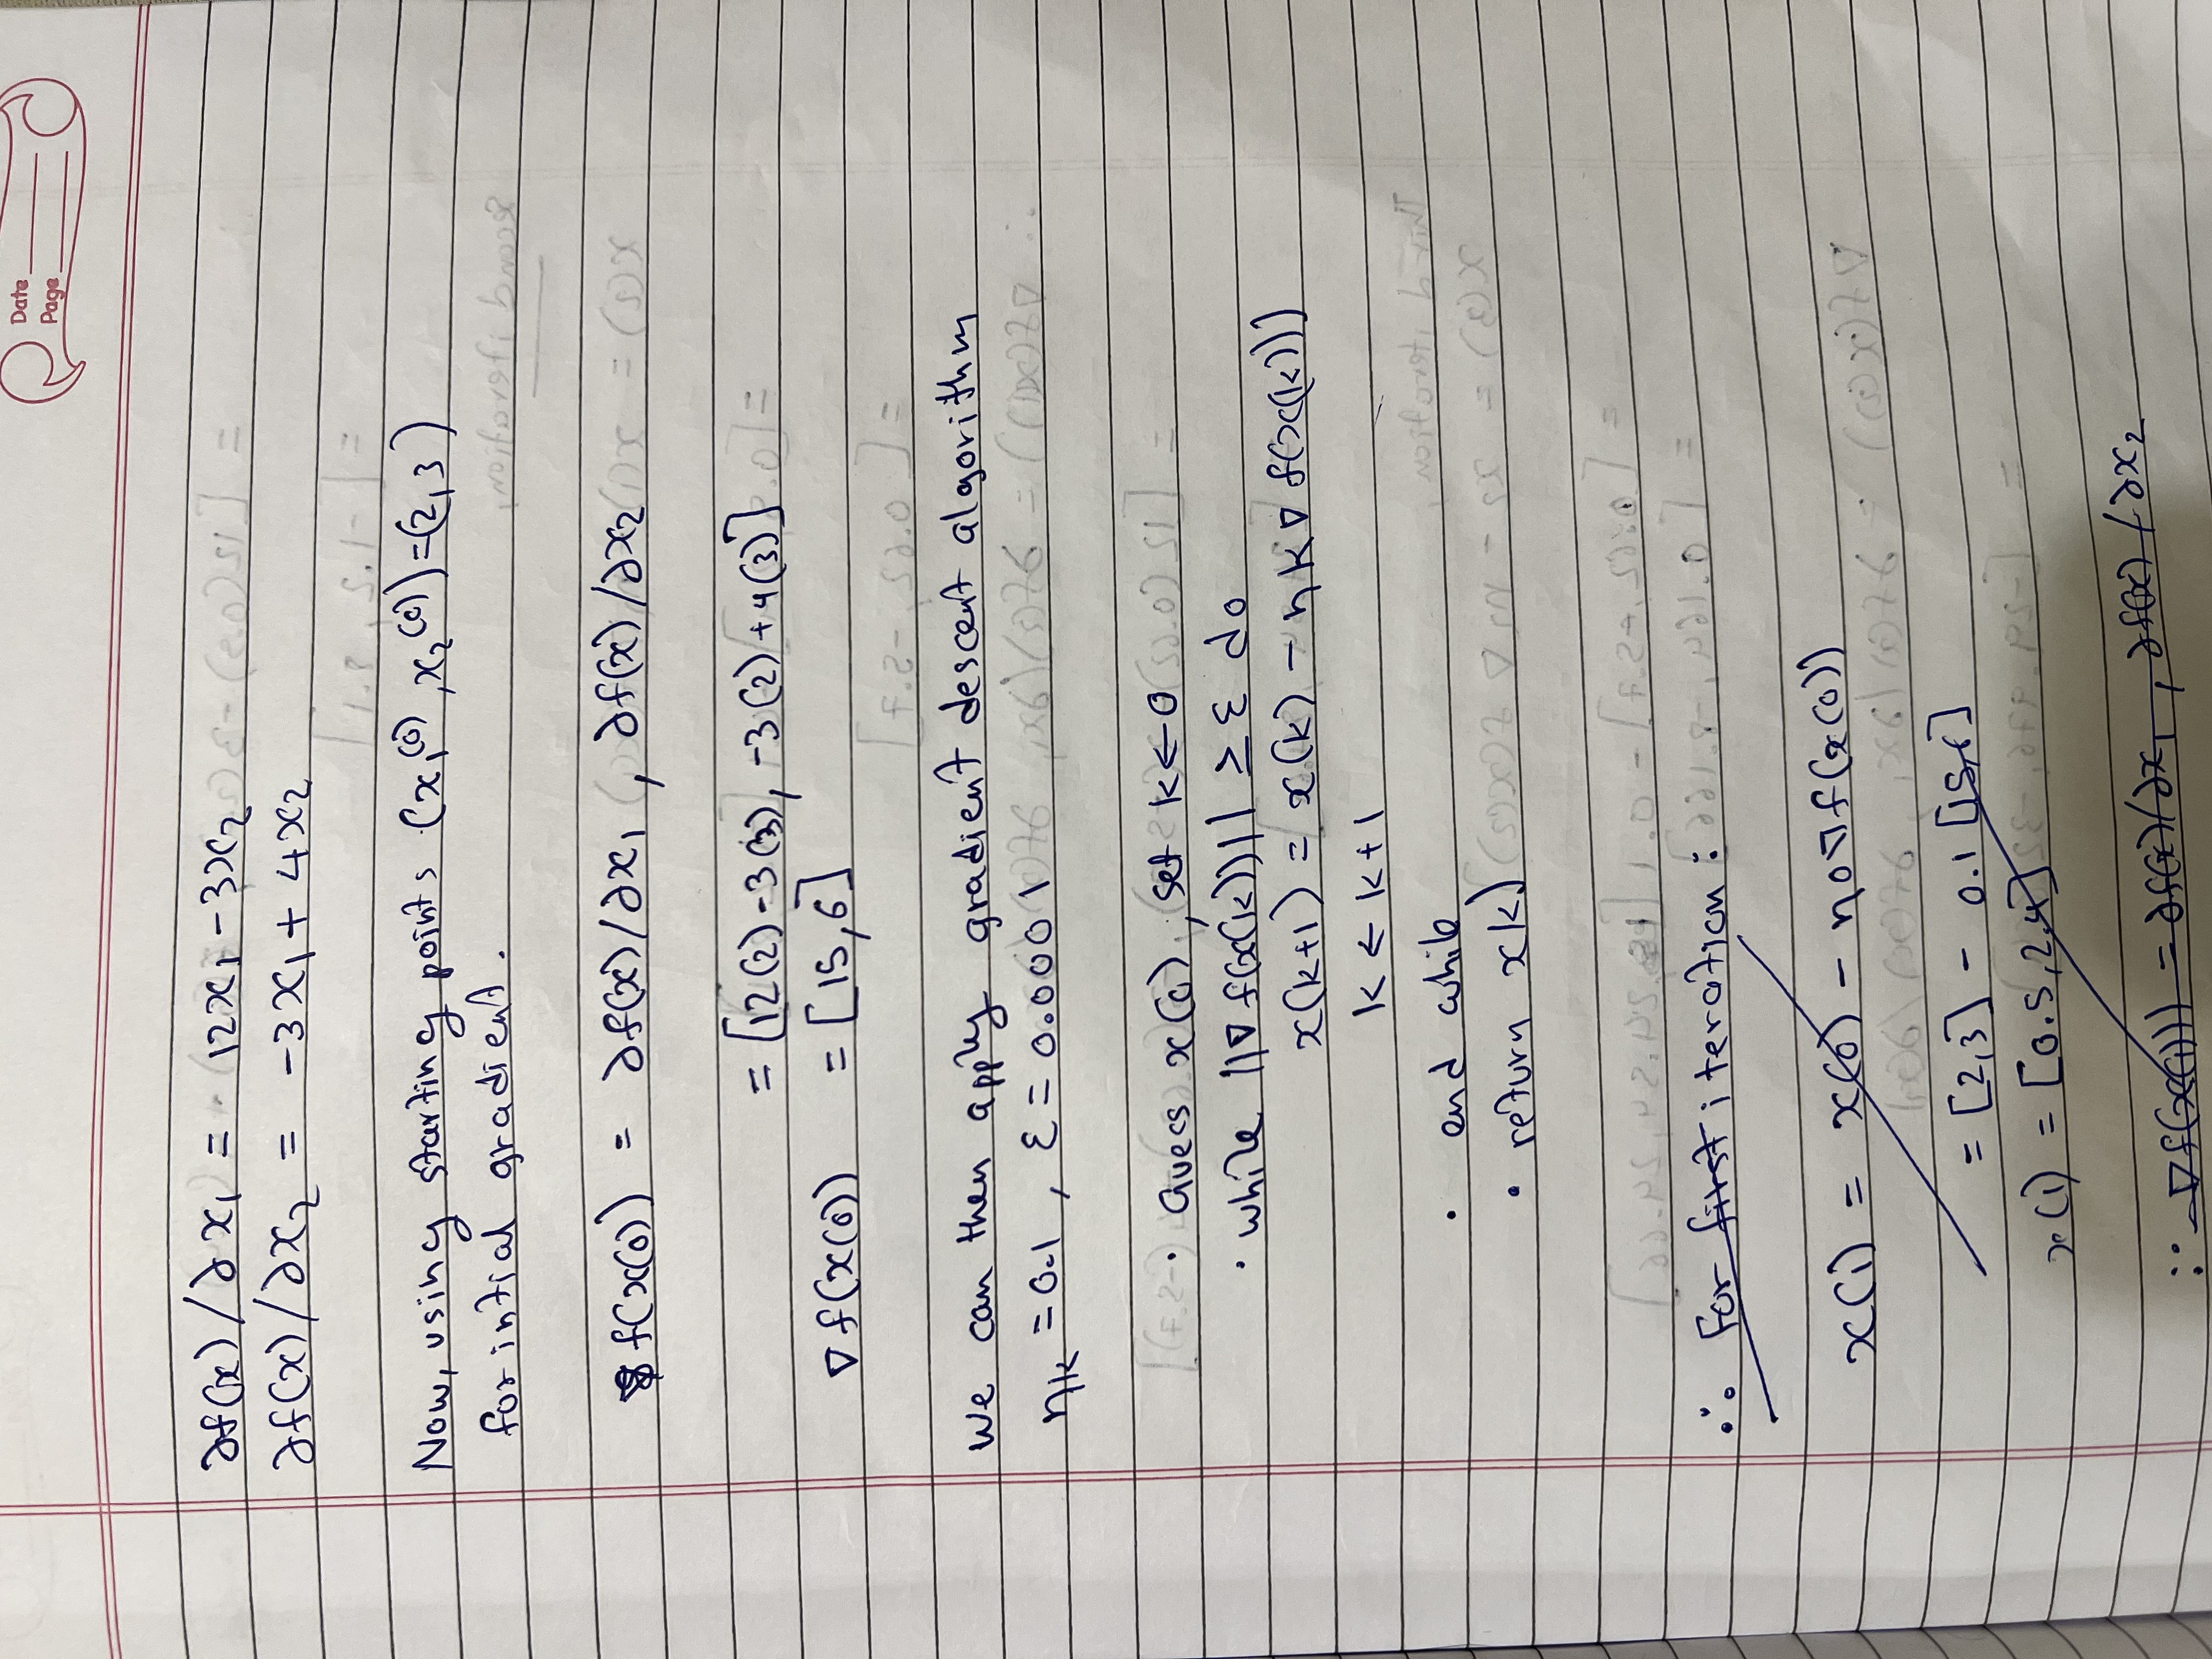 Date
Page
∂f(x)/∂x₁ = 12x₁ - 3x₂
∂f(x)/∂x₂ = -3x₁ + 4x₂
Now, using starting points (x₁⁽⁰⁾, x₂⁽⁰⁾)=(2,3)
for intial gradient.
f(x(0)) = ∂f(x)/∂x₁ , ∂f(x)/∂x₂
= [12(2)-3(3), -3(2)+4(3)]
∇f(x(0)) = [15,6]
we can then apply gradient descent algorithm
ηk = 0.1 , ε = 0.0001
· Guess x(0), set k ← 0
· while ||∇f(x(k))|| ≥ ε do
x(k+1) = x(k) - ηk∇f(x(k)))
k ← k+1
· end while
· return xk)
∴ for first iteration:
x(1) = x(0) - η0∇f(x(0))
= [2,3] - 0.1[15,6]
x(1) = [0.5,2.4]
∵ ∇f(x(1))) = ∂f(x)/∂x₁ , ∂f(x)/∂x₂